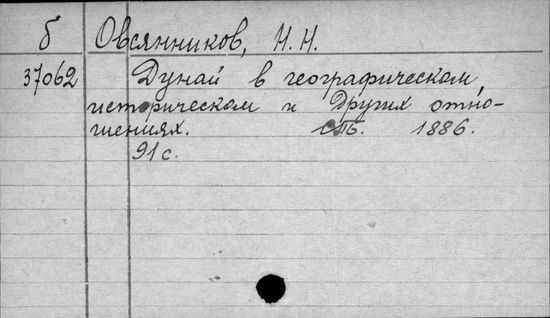 б Овсянников, Н.Н.
37062 Дунай в географическом,
историческом и Других отно-
шениях. СПб. 1886.
91 с.